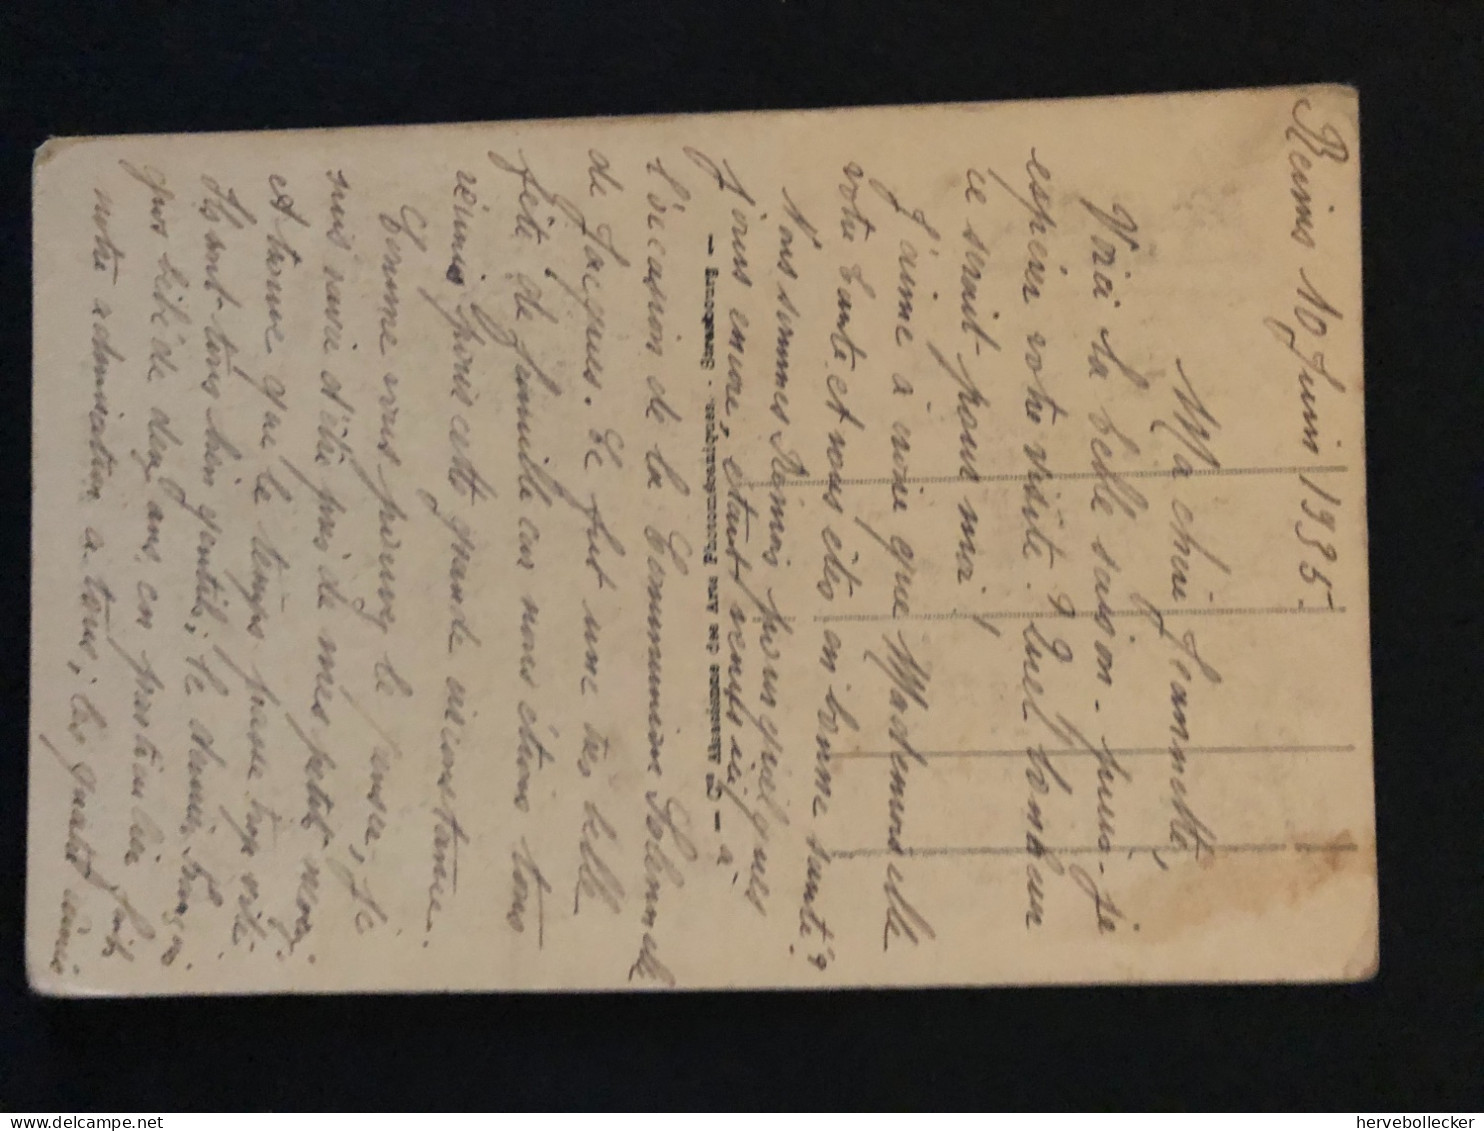 Reims 10 Juin 1935.
Ma chère Jeannette,
Voici la belle saison - puis-je
espérer votre visite ? Quel bonheur
ce serait pour moi !
J'aime à croire que Mademoiselle
votre tante et vous êtes en bonne santé ?
Nous sommes Rémois pour quelques
jours encore, étant venus ici à
l'occasion de la Communion Solennelle
de Jacques. Ce fut une très belle
fête de famille car nous étions tous
réunis pour cette grande circonstance.
Comme vous pouvez le penser, je
suis ravie d'être près de mes petits neveux
et trouve que le temps passe trop vite.
Ils sont tous bien gentils, le dernier,
gros bébé de deux ans, en particulier fait
notre admiration à tous, les quatre
— Cie Alsacienne des Arts Photomécaniques - Strasbourg —
hervebollecker